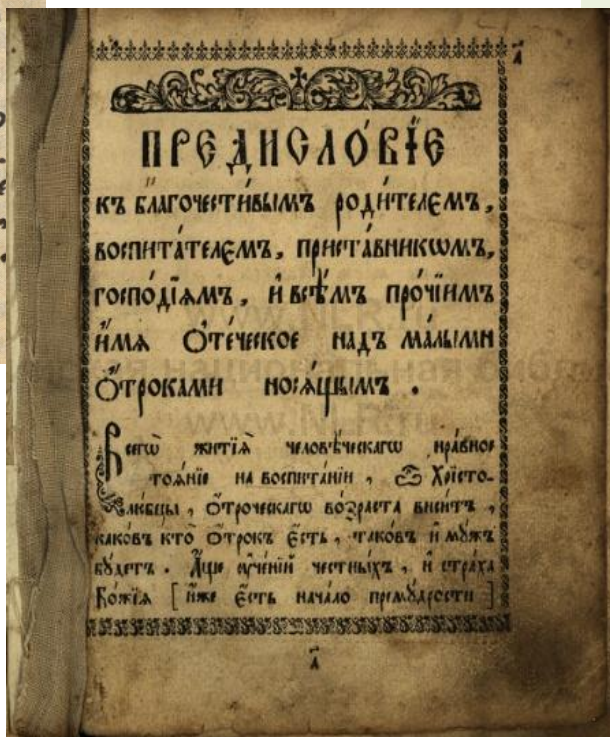 а҃
ПРЕДИСЛО́ВЇЕ
къ благочести́вымъ роди́телємъ,
воспита́телємъ, приста́вникѡмъ,
госпо́дїѧмъ, и҆ всѣ̑мъ про́чїимъ
и҆́мѧ ѻ҆те́ческое надъ ма́лыми
ѻ҆́троками носѧ́щымъ .
Всегѡ̀ житїѧ̀ человѣ́ческагѡ нра́вное
тоѧ́нїе на воспита́нїи , ѽ Хрїсто-
лю́бцы , ѻ҆́троческагѡ во́зраста виси́тъ ,
како́въ кто̀ ѻ҆́трокъ є҆́сть , тако́въ и҆ мꙋ́жъ
бꙋ́детъ . А҆́ще ᲂу҆че́нїй че́стныхъ , и҆ стра́ха
Бо́жїѧ [ и҆́же є҆́сть нача́ло премꙋ́дрости ]
а҃
www.NLR.ru